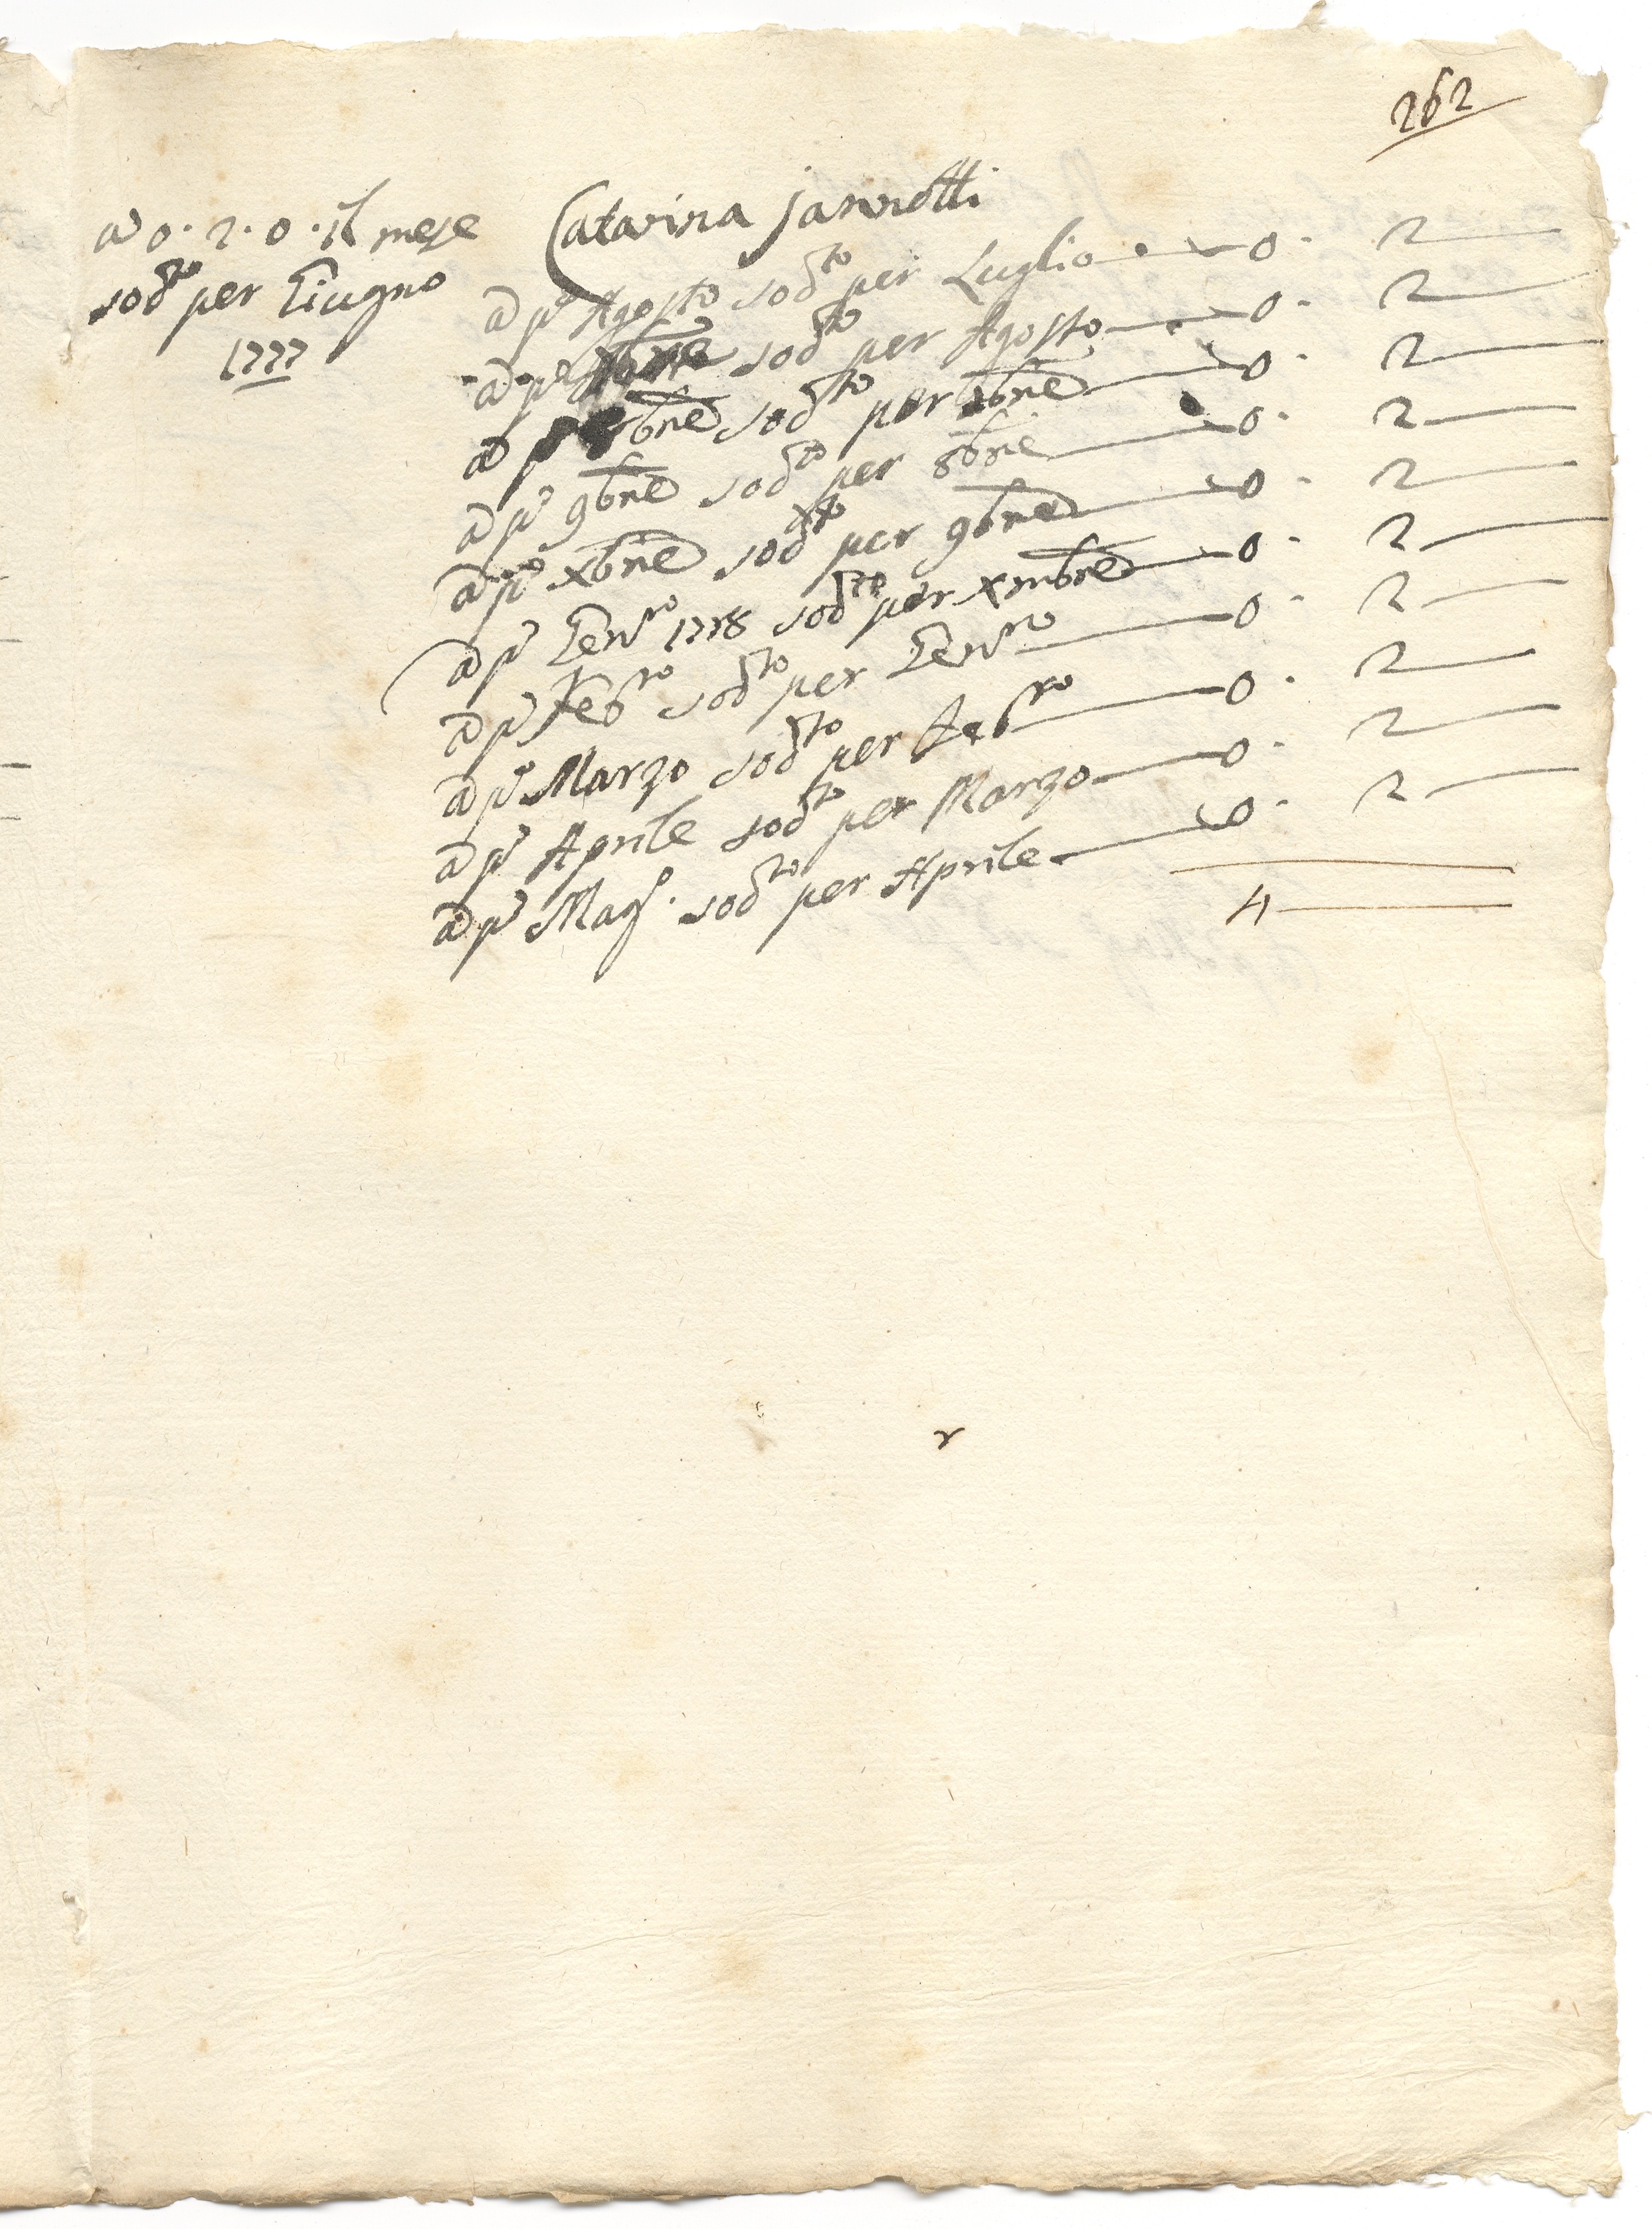 262
a 0. 2. 0. il mese
sod.to per Giugno
1777
Catarina Jannotti
a p.o Agosto sod.to per Luglio 0. 2
a p.o sod.to per Agosto 0. 2
a p.o 8bre sod.to per 7bre 0. 2
a p.o 9bre sod.to per 8bre 0. 2
a p.o Xbre sod.to per 9bre 0. 2
a p.o Gen.ro 1778 sod.to per Xmbre 0. 2
a p.o Feb.ro sod.to per Gen.ro 0. 2
a p.o Marzo sod.to per Feb.ro 0. 2
a p.o Aprile sod.to per Marzo 0. 2
a p.o Mag.o sod.to per Aprile 0. 2
4
r